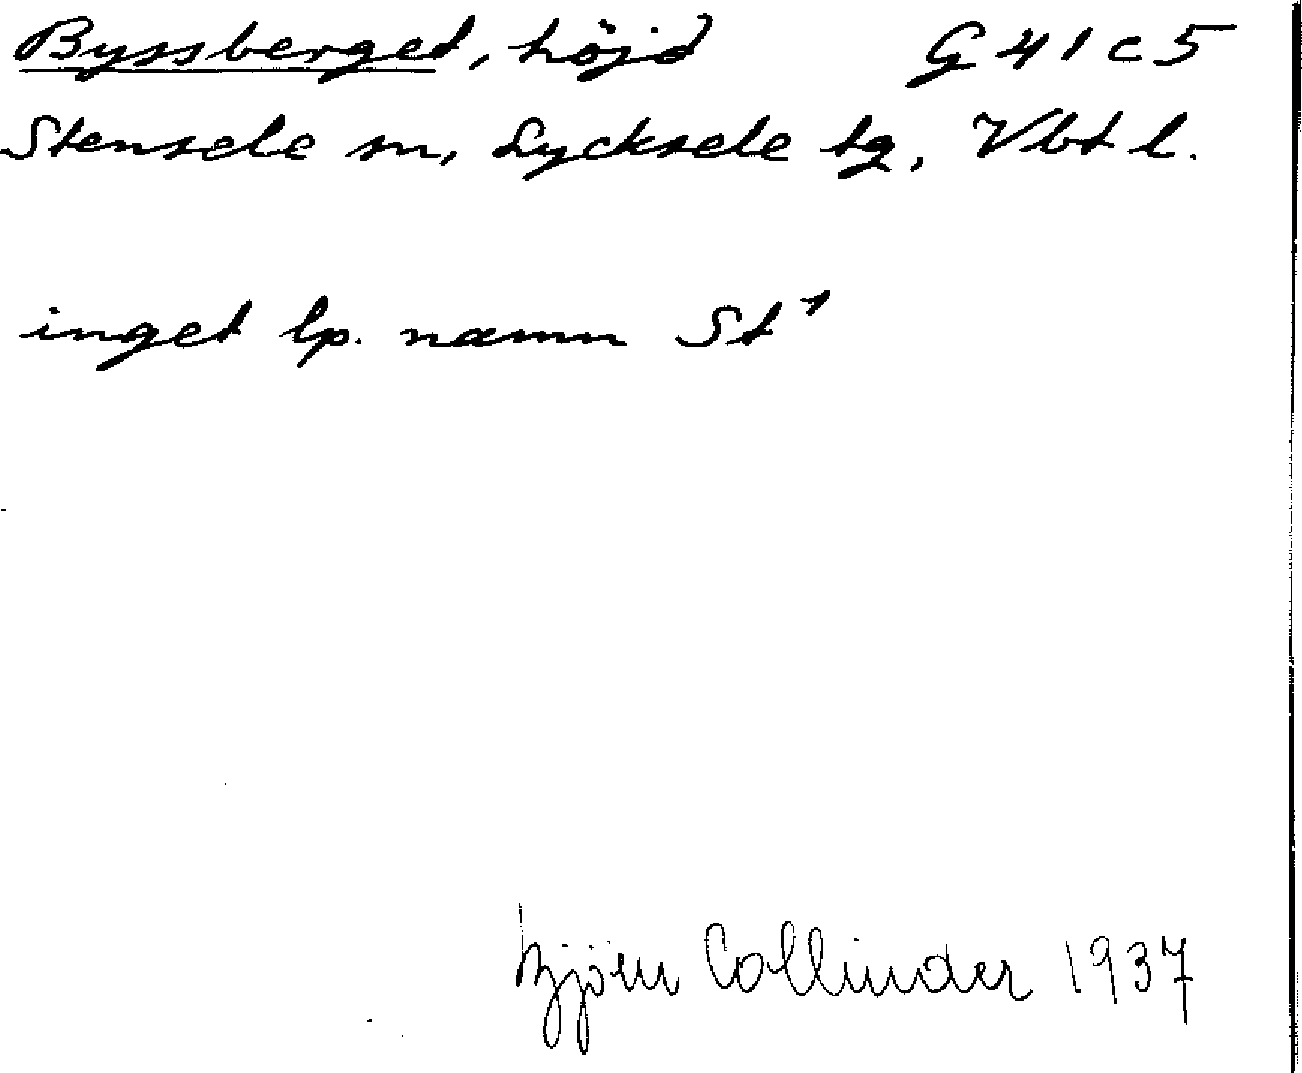 Byssberget, höjd G 41 c 5
Stensele sn, Lycksele tg, Vbt l.
inget lp. namn St¹
Björn Collinder 1937